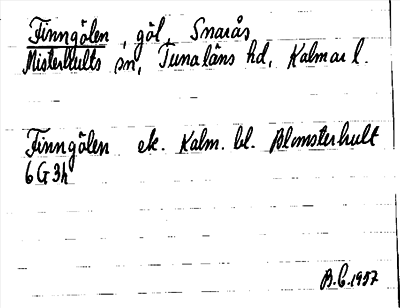 Finngölen, göl, Snarås
Misterhults sn, Tunaläns hd, Kalmar l.
Finngölen ek. Kalm. bl. Blomsterhult
6G3h
B.C.1957